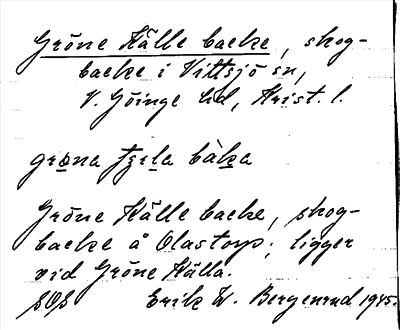 Gröne Källe backe, skog-
backe i Vittsjö sn,
V. Göinge hd, Krist. l.
Gröne Källe backe, skog-
backe å Olastorp; ligger
vid Gröne Källa.
Erik W. Bergenrud 1945.